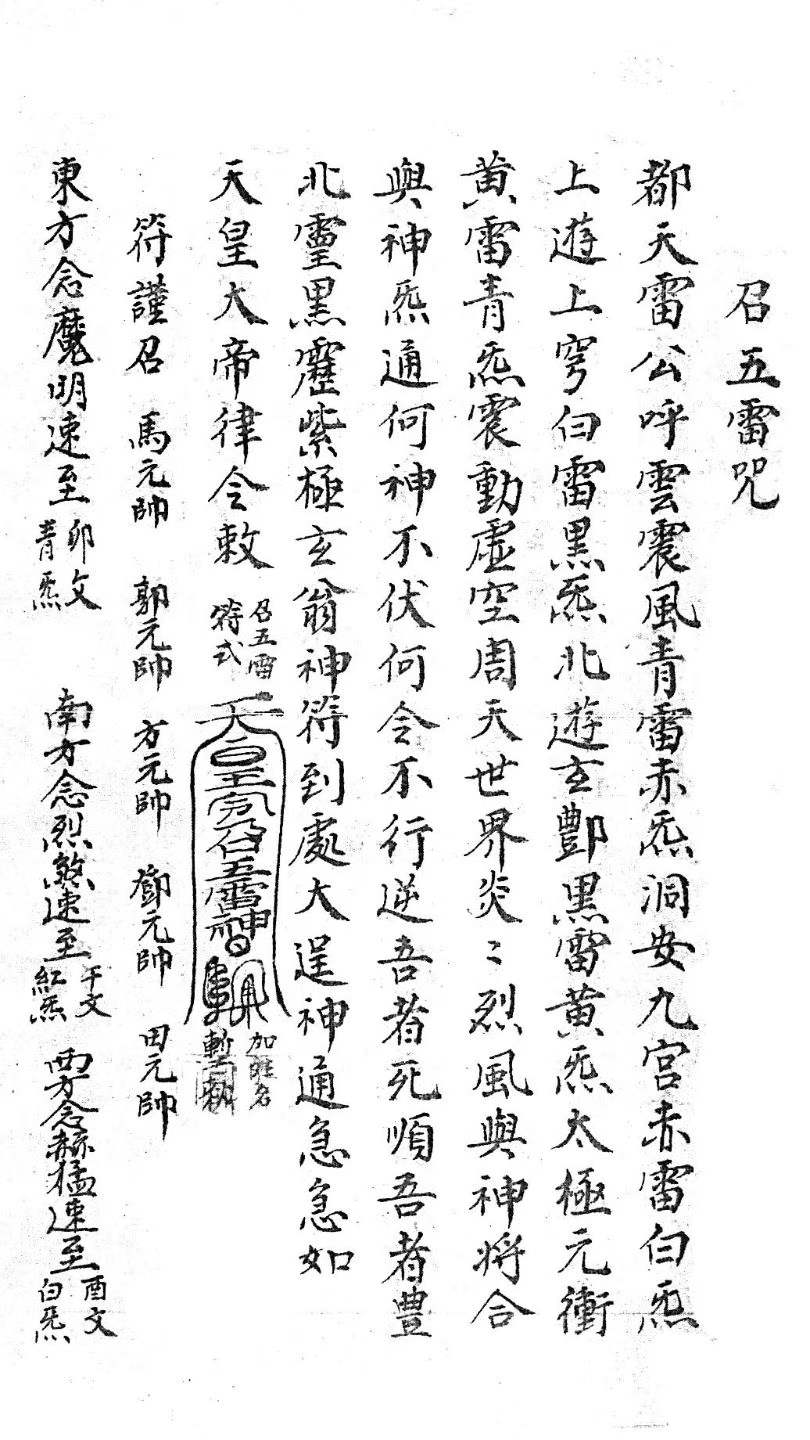 召五雷咒
都天雷公呼雲震風青雷赤炁洞安九宮赤雷白炁
上遊上穹白雷黑炁北遊玄酆黑雷黄炁太極元衝
黄雷青炁震動虛空周天世界炎〻烈風與神將合
與神炁通何神不伏何令不行逆吾者死順吾者豊
北靈黒靂紫極玄翁神符到處大逞神通急急如
天皇大帝律令敕
召五雷
符式
天皇 召五雷神
加 名
符謹召 馬元帥 郭元帥 方元帥 鄧元帥 田元帥
東方念魔明速至 卯文 青炁 南方念烈煞速至 午文 紅炁 西方念赫猛速至 酉文 白炁